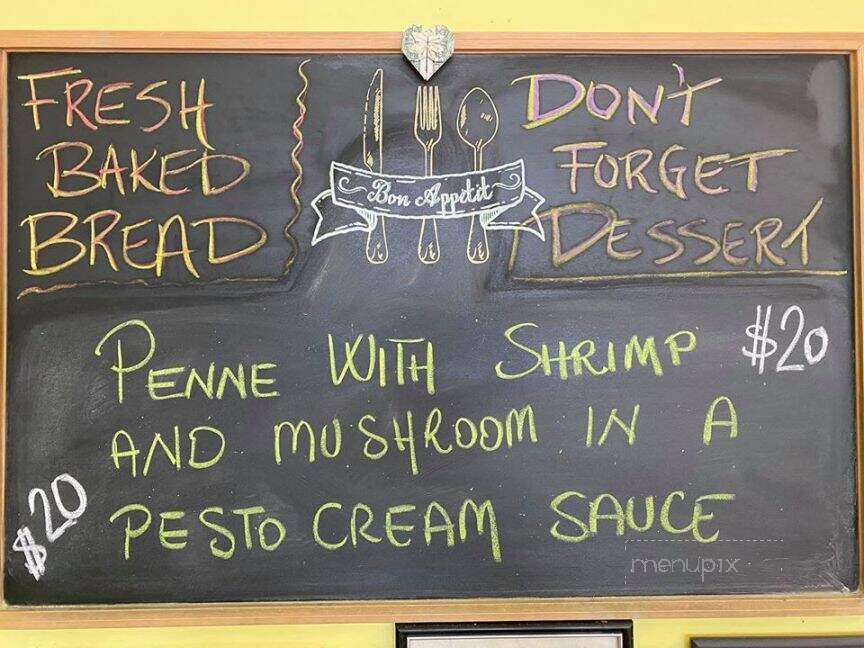 FRESH
BAKED
BREAD
Bon Appétit
DON'T
FORGET
DESSERT
PENNE WITH SHRIMP $20
AND MUSHROOM IN A
$20
PESTO CREAM SAUCE
menupix